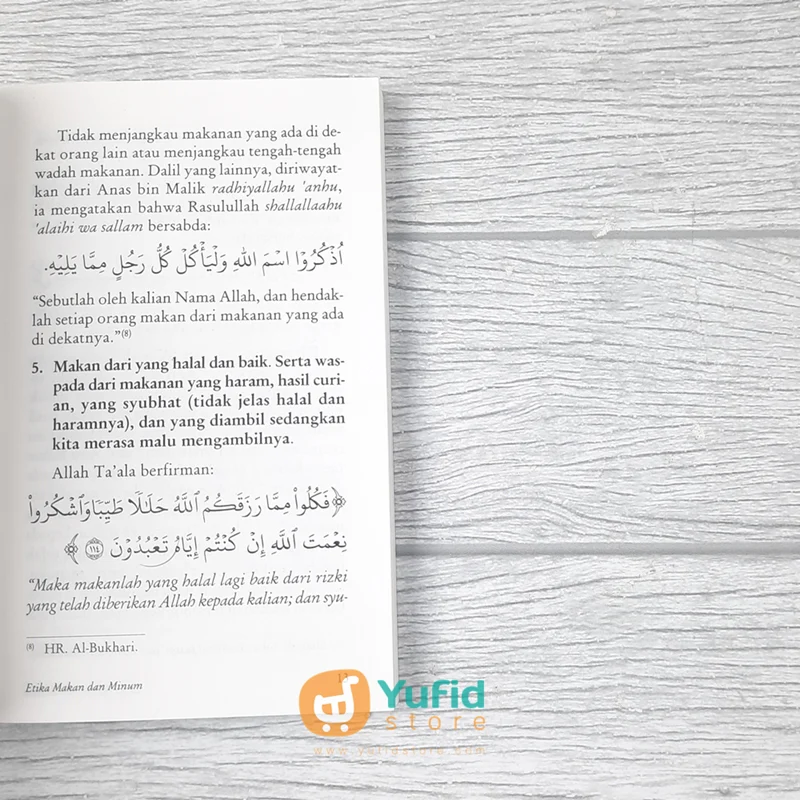 Tidak menjangkau makanan yang ada di de-
kat orang lain atau menjangkau tengah-tengah
wadah makanan. Dalil yang lainnya, diriwayat-
kan dari Anas bin Malik radhiyallahu 'anhu,
ia mengatakan bahwa Rasulullah shallallaahu
'alaihi wa sallam bersabda:
اُذْكُرُوْا اسْمَ اللهِ وَلْيَأْكُلْ كُلُّ رَجُلٍ مِمَّا يَلِيْهِ.
“Sebutlah oleh kalian Nama Allah, dan hendak-
lah setiap orang makan dari makanan yang ada
di dekatnya.”(8)
5. Makan dari yang halal dan baik. Serta was-
pada dari makanan yang haram, hasil curi-
an, yang syubhat (tidak jelas halal dan
haramnya), dan yang diambil sedangkan
kita merasa malu mengambilnya.
Allah Ta'ala berfirman:
﴿فَكُلُوا۟ مِمَّا رَزَقَكُمُ ٱللَّهُ حَلَـٰلًا طَيِّبًا وَٱشْكُرُوا۟
نِعْمَتَ ٱللَّهِ إِن كُنتُمْ إِيَّاهُ تَعْبُدُونَ ١١٤﴾
“Maka makanlah yang halal lagi baik dari rizki
yang telah diberikan Allah kepada kalian; dan syu-
(8) HR. Al-Bukhari.
Etika Makan dan Minum
Yufid
store
www.yufidstore.com